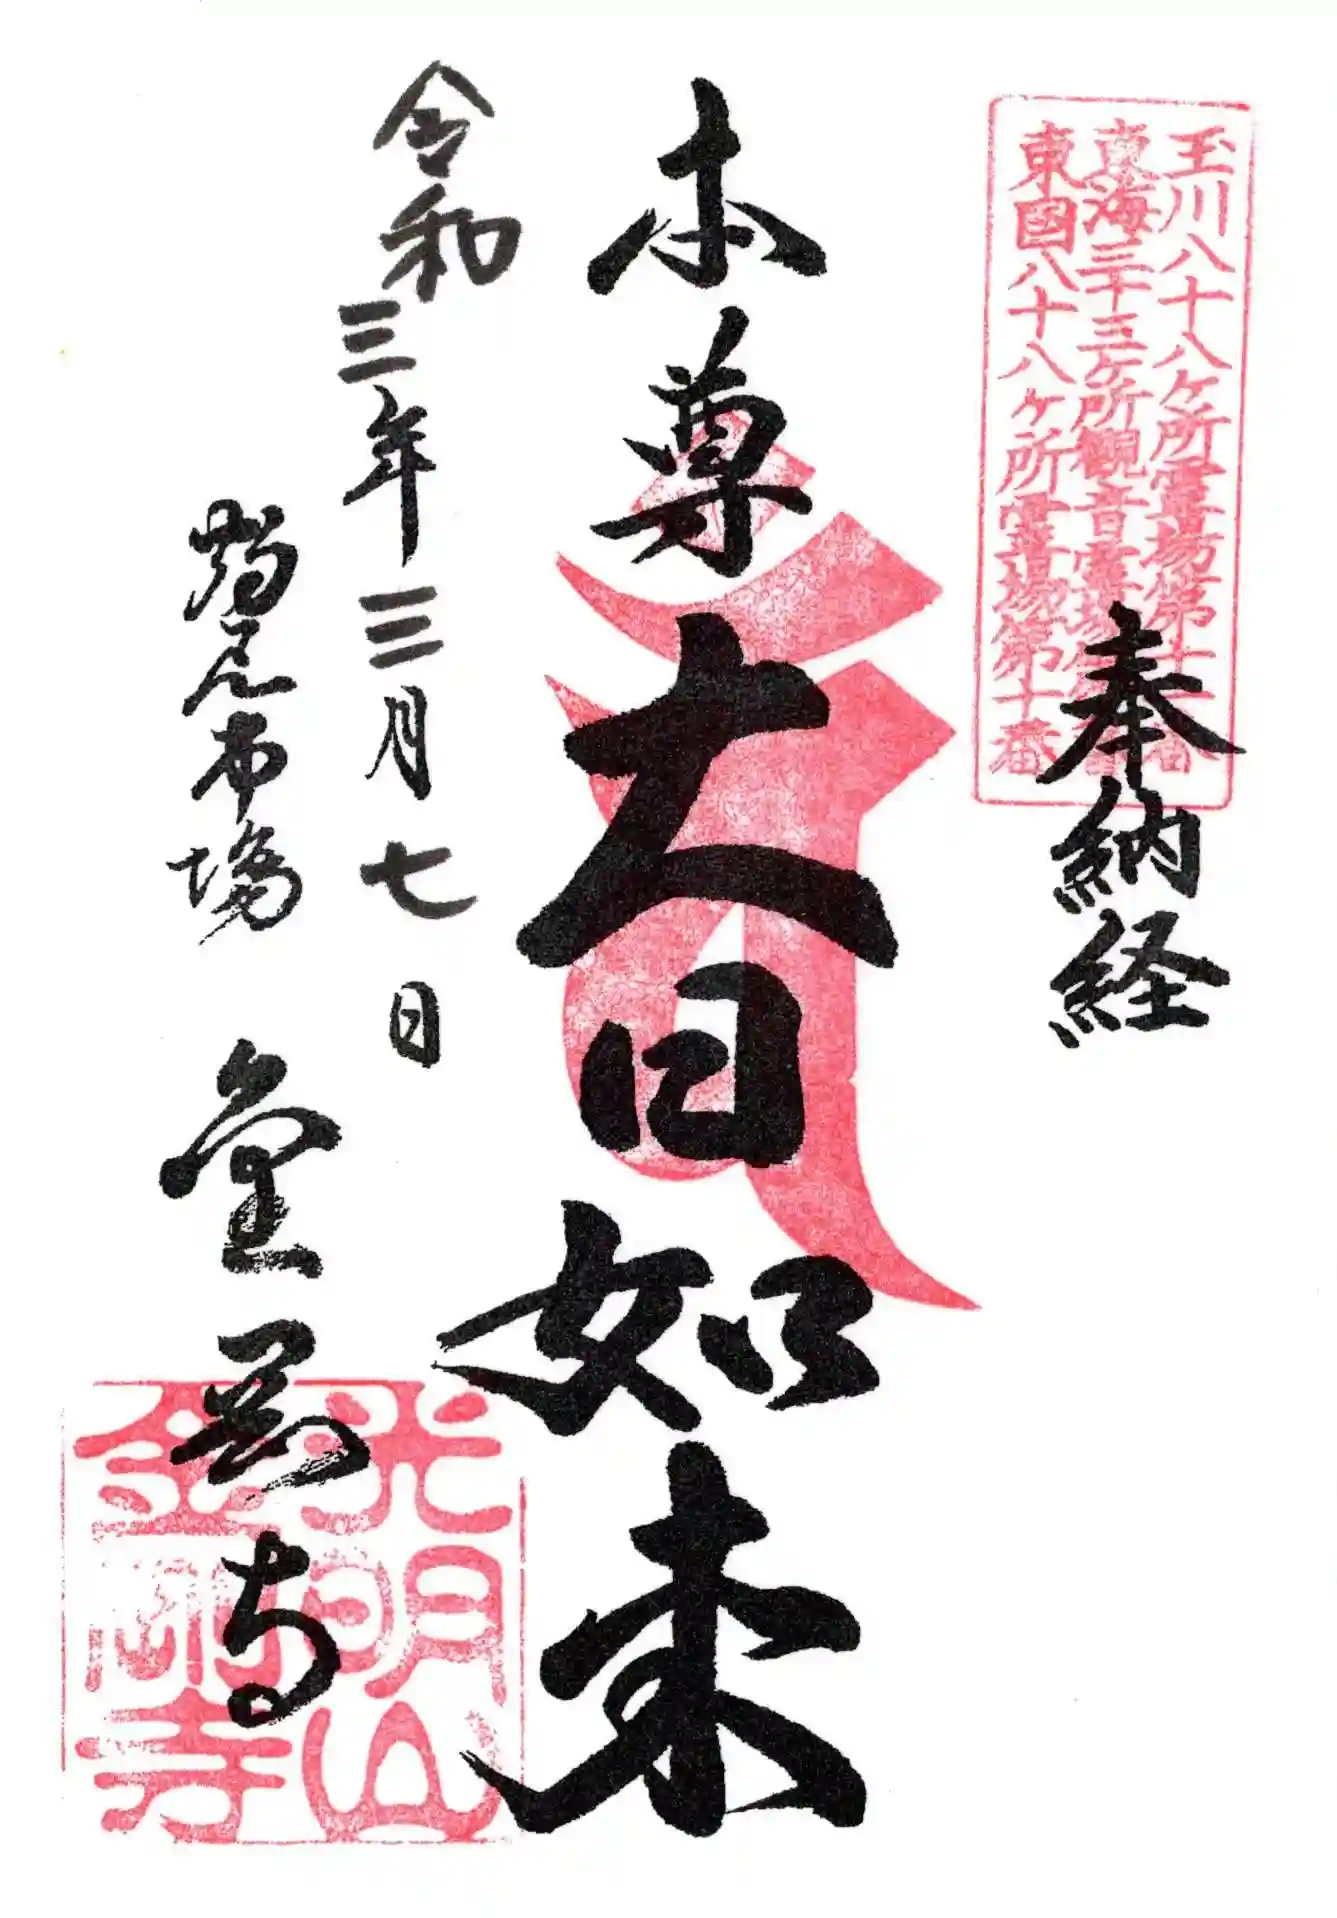 玉川八十八ケ所霊場第十一番
東海三十三ケ所観音霊場
東國八十八ケ所霊場第十番
奉納経
本尊大日如来
令和三年三月七日
鶴見市場
金剛寺
光明山
金剛寺